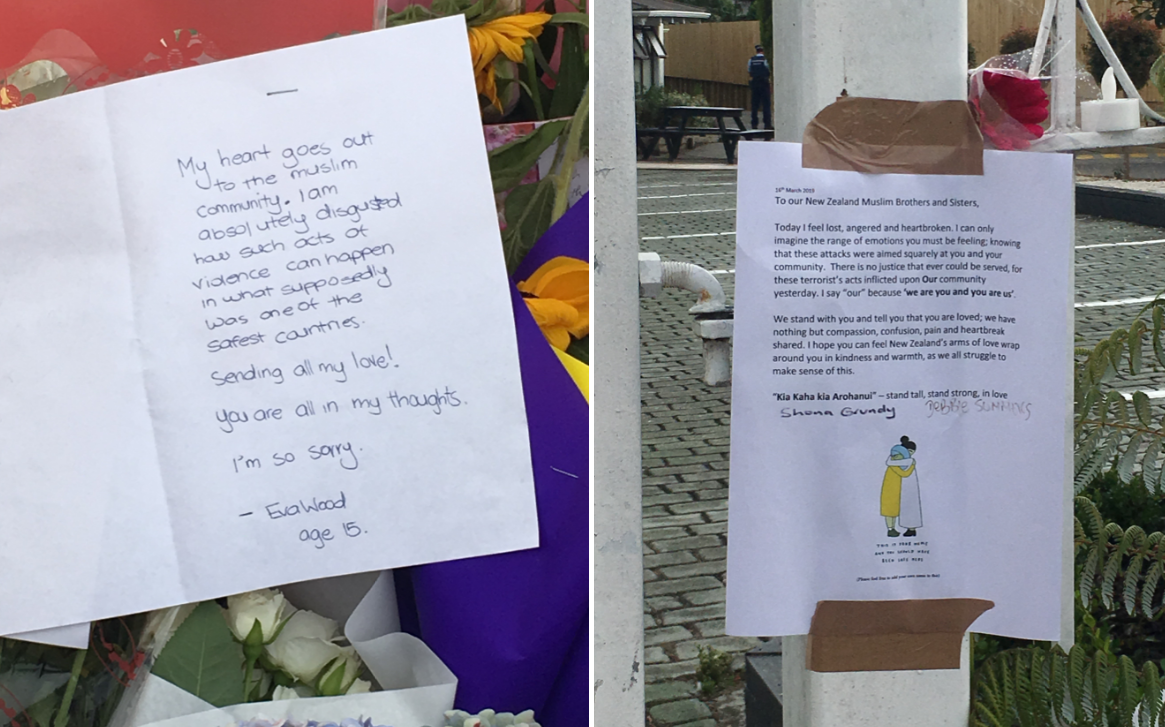 My heart goes out
to the muslim
community. I am
absolutely disgusted
how such acts of
violence can happen
in what supposedly
was one of the
safest countries.
Sending all my love!
you are all in my thoughts.
I'm so sorry.
- Eva Wood
age 15.
16th March 2019
To our New Zealand Muslim Brothers and Sisters,
Today I feel lost, angered and heartbroken. I can only
imagine the range of emotions you must be feeling; knowing
that these attacks were aimed squarely at you and your
community. There is no justice that ever could be served, for
these terrorist's acts inflicted upon Our community
yesterday. I say "our" because 'we are you and you are us'.
We stand with you and tell you that you are loved; we have
nothing but compassion, confusion, pain and heartbreak
shared. I hope you can feel New Zealand's arms of love wrap
around you in kindness and warmth, as we all struggle to
make sense of this.
"Kia Kaha kia Arohanui" – stand tall, stand strong, in love
Shona Grundy
THIS IS YOUR HOME
AND YOU SHOULD HAVE
BEEN SAFE HERE
(Please feel free to add your own name to this)